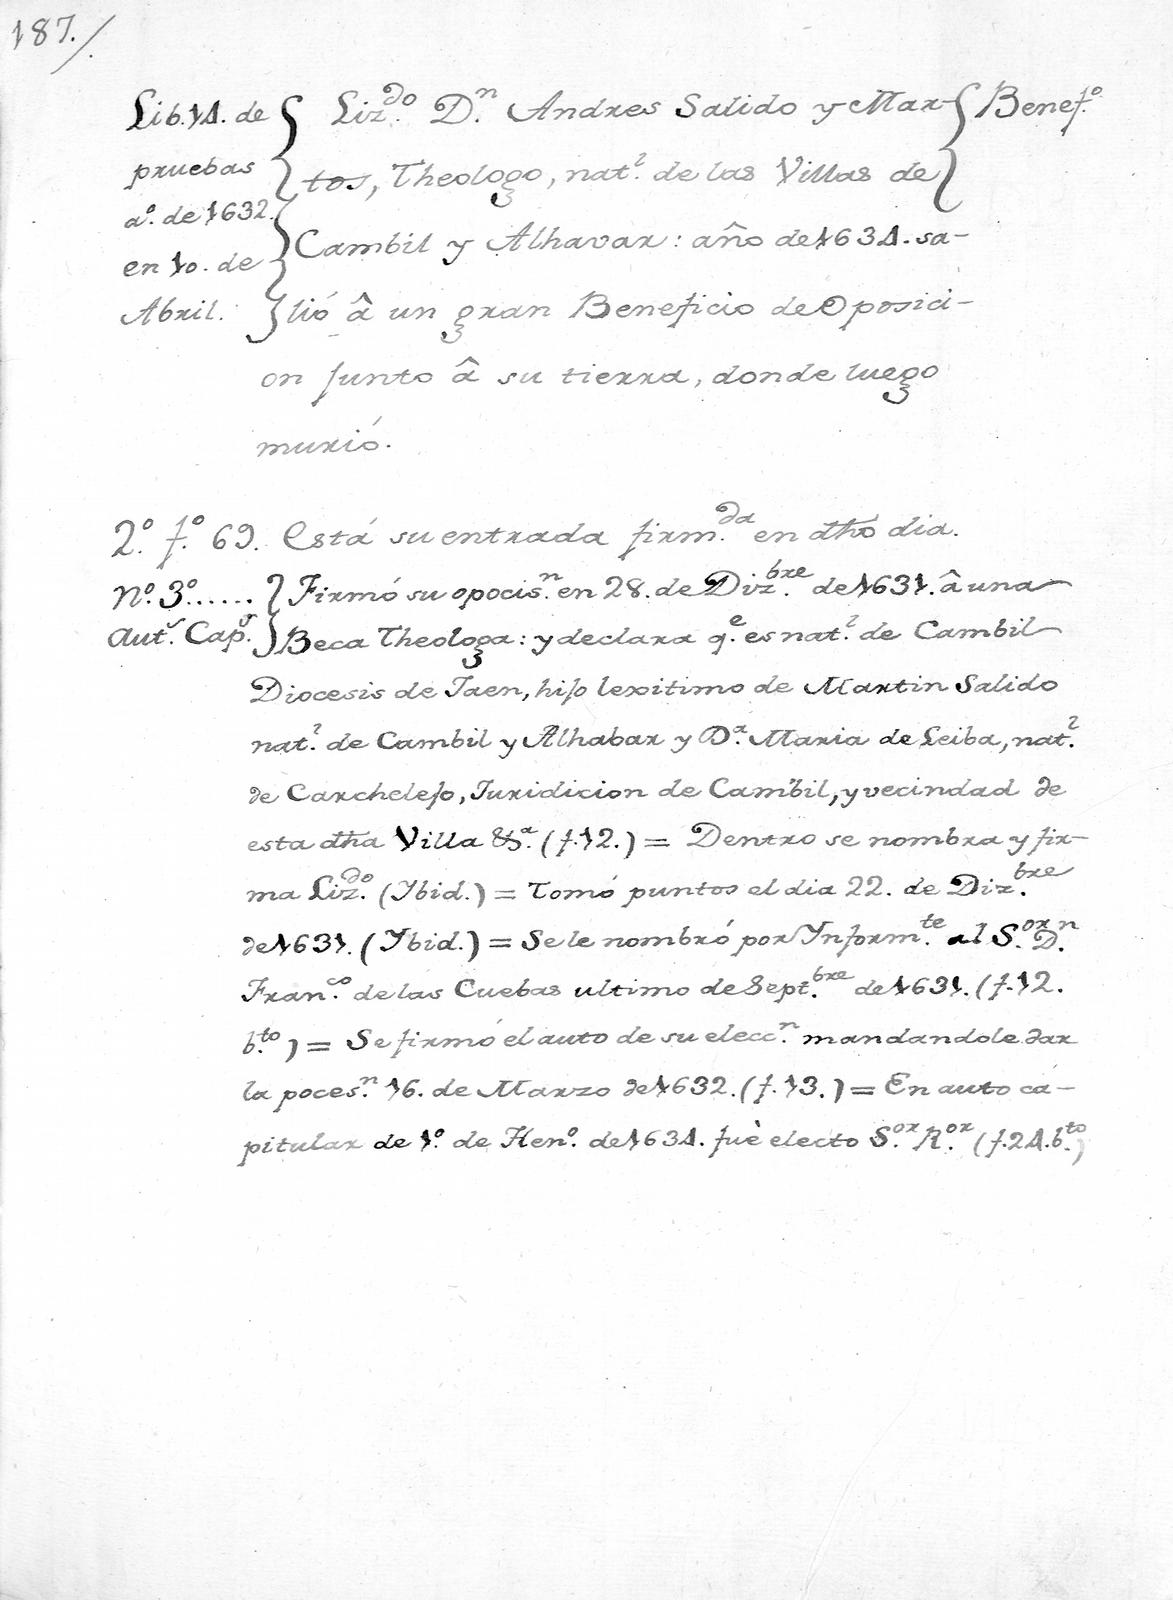 187./.
Lib. 14. de
pruebas
aº. de 1632.
en 10. de
Abril.
Lizdo. Dn. Andres Salido y Mar-
tos, Theologo, natl. de las Villas de
Cambil y Alhavar: año de 1634. sa-
lió â un gran Beneficio de Oposici-
on junto â su tierra, donde luego
murió.
Benefº.
2º. fº. 69. Está su entrada firm.da en dho dia.
Nº. 3º......
Aut. Cap.
Firmó su opocisn. en 28. de Dizbre. de 1631. â una
Beca Theologa: y declara qe. es natl. de Cambil
Diocesis de Jaen, hijo lexitimo de Martin Salido
natl. de Cambil y Alhabar y Da. Maria de Leiba, natl.
de Carchelejo, Juridicion de Cambil, y vecindad de
esta dha Villa &a. (f. 12.) = Dentro se nombra y fir-
ma Lizdo. (Ybid.) = Tomó puntos el dia 22. de Dizbre.
de 1631. (Ybid.) = Se le nombró por Ynformte. al Sor. Dn.
Franco. de las Cuebas ultimo de Septbre. de 1631. (f. 12.
bto.) = Se firmó el auto de su eleccn. mandandole dar
la pocesn. 16. de Marzo de 1632. (f. 13.) = En auto ca-
pitular de 1º. de Henº. de 1634. fuè electo Sor. Ror. (f. 24. bto.)